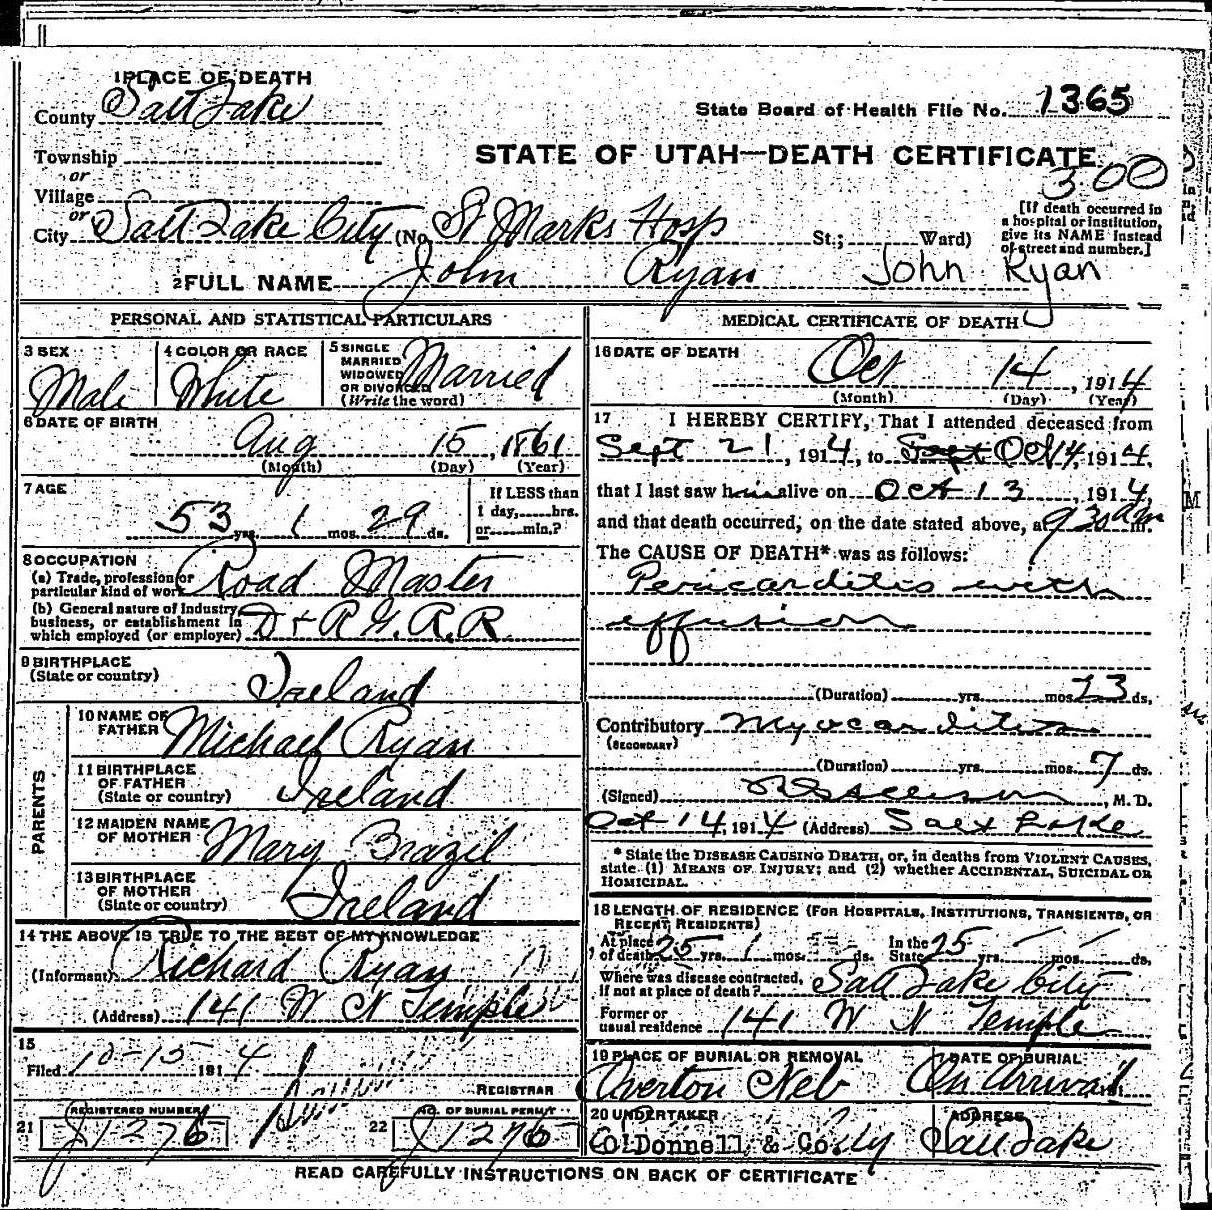 1 PLACE OF DEATH
County Salt Lake
State Board of Health File No. 1365
Township
or
STATE OF UTAH—DEATH CERTIFICATE
300
Village
or
City Salt Lake City (No. St Marks Hosp St.; Ward)
[If death occurred in a hospital or institution, give its NAME instead of street and number.]
2 FULL NAME John Ryan John Ryan
PERSONAL AND STATISTICAL PARTICULARS
3 SEX
Male
4 COLOR OR RACE
White
5 SINGLE MARRIED WIDOWED OR DIVORCED (Write the word)
Married
6 DATE OF BIRTH
Aug 15, 1861
(Month) (Day) (Year)
7 AGE
53 yrs. 1 mos. 29 ds.
If LESS than 1 day, hrs. or min.?
8 OCCUPATION
(a) Trade, profession or particular kind of work Road Master
(b) General nature of industry, business, or establishment in which employed (or employer) D + R G. R.R.
9 BIRTHPLACE
(State or country) Ireland
PARENTS
10 NAME OF FATHER Michael Ryan
11 BIRTHPLACE OF FATHER (State or country) Ireland
12 MAIDEN NAME OF MOTHER Mary Brazil
13 BIRTHPLACE OF MOTHER (State or country) Ireland
14 THE ABOVE IS TRUE TO THE BEST OF MY KNOWLEDGE
(Informant) Richard Ryan
(Address) 141 W N Temple
15
Filed 10-15 1914
REGISTRAR
21 REGISTERED NUMBER J1276
22 NO. OF BURIAL PERMIT J1276
MEDICAL CERTIFICATE OF DEATH
16 DATE OF DEATH
Oct 14, 1914
(Month) (Day) (Year)
17 I HEREBY CERTIFY, That I attended deceased from
Sept 21, 1914, to Sept Oct 14, 1914,
that I last saw him alive on Oct 13, 1914,
and that death occurred, on the date stated above, at 930 am m.
The CAUSE OF DEATH* was as follows:
Pericarditis with
effusion
(Duration) yrs. mos. 23 ds.
Contributory Myocarditis
(SECONDARY)
(Duration) yrs. mos. 7 ds.
(Signed) , M. D.
Oct 14, 1914 (Address) Salt Lake
* State the DISEASE CAUSING DEATH, or, in deaths from VIOLENT CAUSES, state (1) MEANS OF INJURY; and (2) whether ACCIDENTAL, SUICIDAL OR HOMICIDAL.
18 LENGTH OF RESIDENCE (FOR HOSPITALS, INSTITUTIONS, TRANSIENTS, OR RECENT RESIDENTS)
At place of death 25 yrs. 1 mos. ds. In the State 25 yrs. mos. ds.
Where was disease contracted, If not at place of death? Salt Lake City
Former or usual residence 141 W N Temple
19 PLACE OF BURIAL OR REMOVAL
Overton Neb
DATE OF BURIAL
On Arrival
20 UNDERTAKER
O'Donnell & Co.
ADDRESS
Salt Lake
READ CAREFULLY INSTRUCTIONS ON BACK OF CERTIFICATE